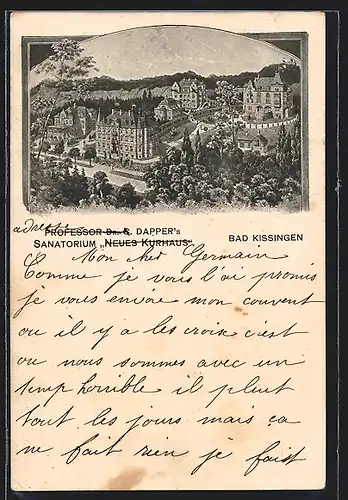 adresse PROFESSOR DR. C. DAPPER's
SANATORIUM „NEUES KURHAUS". BAD KISSINGEN
Mon cher Germain
Comme je vous l'ai promis
je vous envoie mon couvent
ou il y a les croix c'est
ou nous sommes avec un
temp horrible il pleut
tout les jours mais ça
ne fait rien je faist